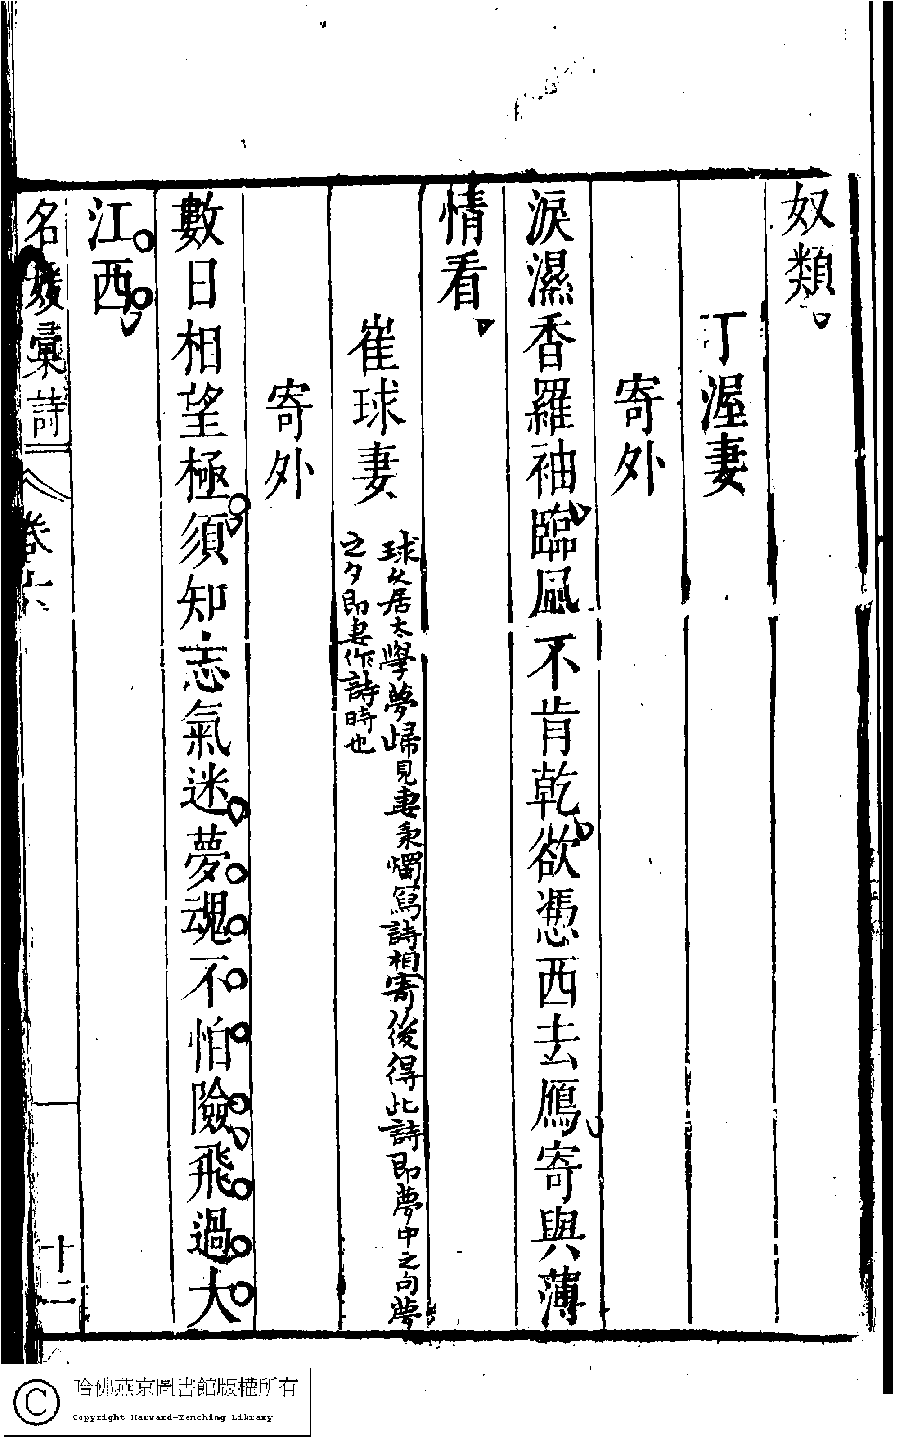 奴類
丁渥妻
寄外
淚濕香羅袖臨風不肯乾欲憑西去鴈寄與薄
情看
崔球妻
球久居太學夢歸見妻秉燭寫詩相寄後得此詩即夢中之句夢
之夕即妻作詩時也
寄外
數日相望極須知志氣迷夢魂不怕險飛過大
江西
名媛彙詩
卷六
十二
哈佛燕京圖書館版權所有
Copyright Harvard-Yenching Library